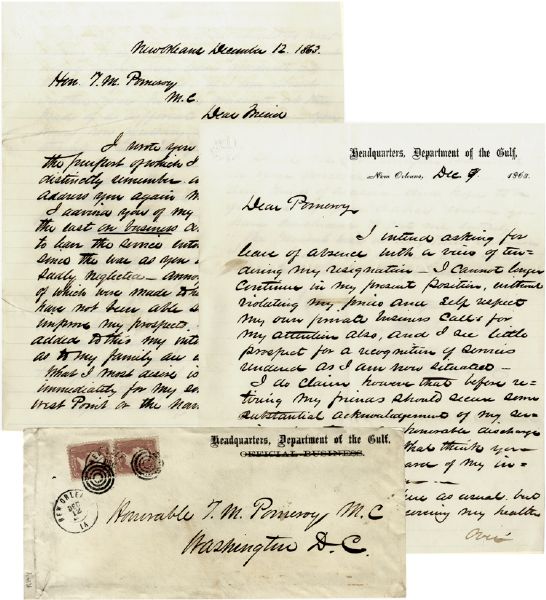 New Orleans December 12. 1863.
Hon. T. M. Pomeroy
M. C.
Dear Friend
I wrote you
the purport of which I
distinctly remember
address you again
I advised you of my
the East on business
to leave the service
since the war as you
sadly neglected
of which were made to
have not been able
improve my prospect.
added to this my
as to my family
What I most desire is
immediately for my
West Point or the
Headquarters, Department of the Gulf,
New Orleans, Dec 9 1863.
Dear Pomeroy
I intend asking for
leave of absence with a view of ten-
dering my resignation – I cannot longer
continue in my present position, without
violating my pride and self respect
my own private business calls for
my attention also, and I see little
prospect for a recognition of services
rendered as I am now situated –
I do claim however that before re-
tiring my friends should secure some
substantial acknowledgement of my ser-
honorable discharge
that think you
of my
as usual but
my health
Over
Headquarters, Department of the Gulf.
OFFICIAL BUSINESS.
NEW ORLEANS
DEC
12
LA
Honorable T. M. Pomeroy M. C
Washington D. C.